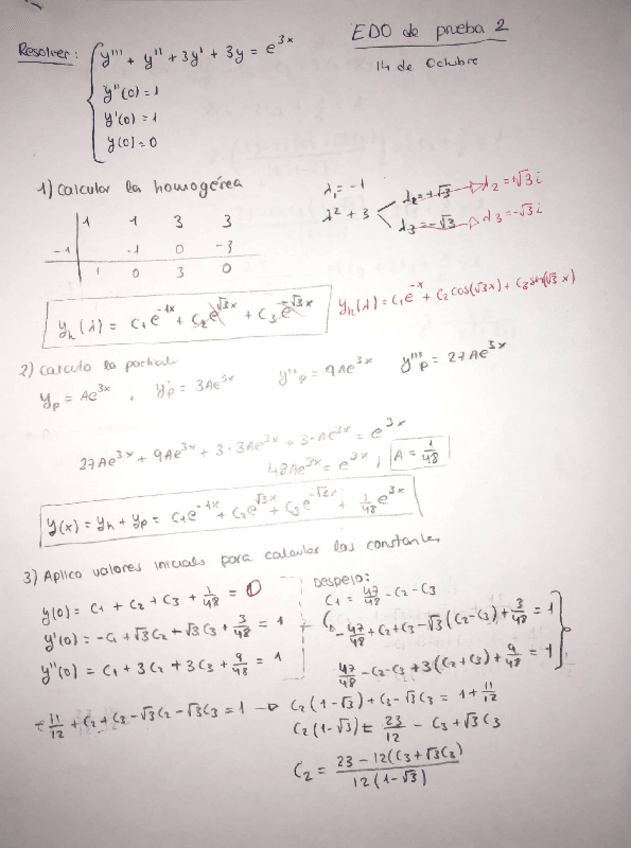 EDO de prueba 2
14 de Octubre
Resolver: y''' + y'' + 3y' + 3y = e^{3x}
y''(0) = 1
y'(0) = 1
y(0) = 0
1) Calcular la homogénea
1 1 3 3
-1 -1 0 -3
1 0 3 0
λ₁ = -1
λ² + 3
λ₂ = +√3 → λ₂ = +√3 i
λ₃ = -√3 → λ₃ = -√3 i
y_h(λ) = C₁e^{-1x} + C₂e^{√3x} + C₃e^{-√3x}
y_h(λ) = C₁e^{-x} + C₂ cos(√3x) + C₃ sin(√3x)
2) Calculo la particular
y_p = Ae^{3x}, y'_p = 3Ae^{3x} y''_p = 9Ae^{3x} y'''_p = 27Ae^{3x}
27Ae^{3x} + 9Ae^{3x} + 3·3Ae^{3x} + 3·Ae^{3x} = e^{3x}
48Ae^{3x} = e^{3x}; A = 1/48
y(x) = y_h + y_p = C₁e^{-1x} + C₂e^{√3x} + C₃e^{-√3x} + 1/48 e^{3x}
3) Aplico valores iniciales para calcular las constantes
y(0) = C₁ + C₂ + C₃ + 1/48 = 0
y'(0) = -C₁ + √3C₂ - √3C₃ + 3/48 = 1
y''(0) = C₁ + 3C₂ + 3C₃ + 9/48 = 1
Despejo:
C₁ = 47/48 - C₂ - C₃
-47/48 + C₂ + C₃ - √3(C₂ - C₃) + 3/48 = 1
47/48 - C₂ - C₃ + 3(C₂ + C₃) + 9/48 = 1
-11/12 + C₂ + C₃ - √3C₂ - √3C₃ = 1 → C₂(1-√3) + C₃ - √3C₃ = 1 + 11/12
C₂(1-√3) = 23/12 - C₃ + √3C₃
C₂ = 23 - 12(C₃ + √3C₃) / 12(1-√3)